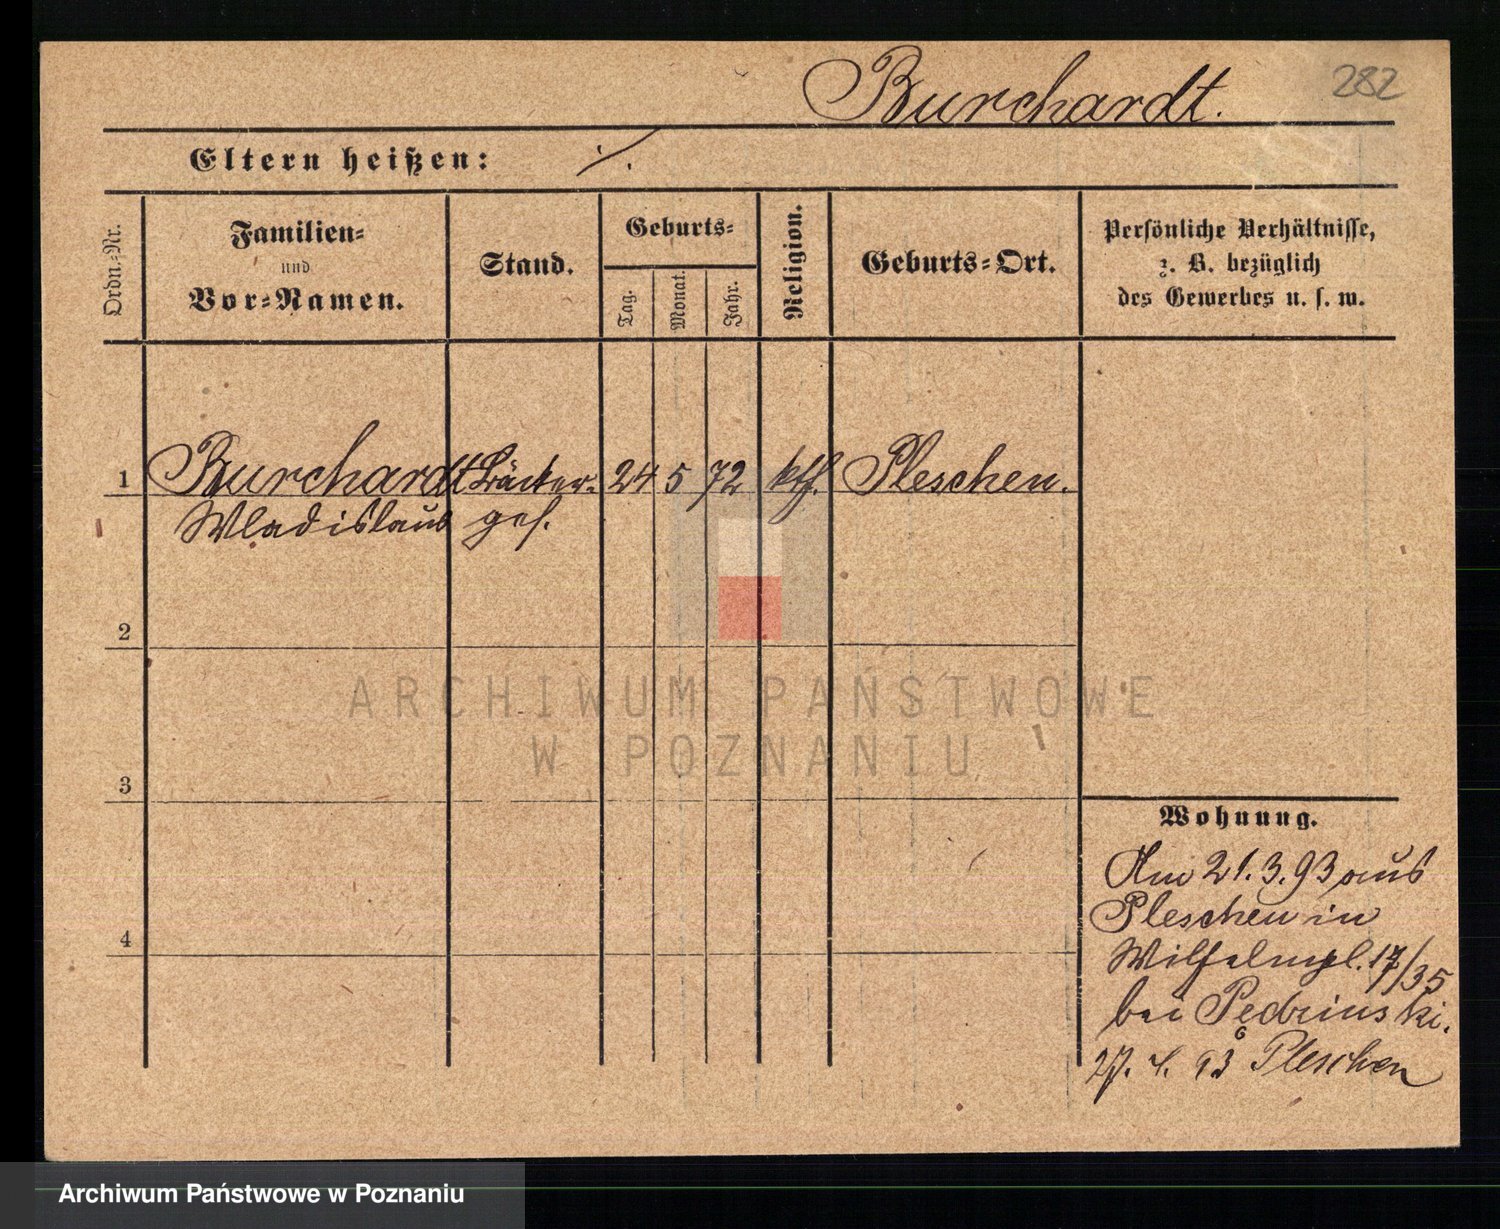 282
Burchardt.
Eltern heißen: ·/.
Ordn.-Nr.
Familien-
und
Vor-Namen.
Stand.
Geburts-
Tag.
Monat.
Jahr.
Religion.
Geburts-Ort.
Persönliche Verhältnisse,
z. B. bezüglich
des Gewerbes u. s. w.
1 Burchardt Bäcker- 24 5 72 kth. Pleschen.
Wladislaus ges.
2
ARCHIWUM PAŃSTWOWE
W POZNANIU
3
Wohnung.
Am 21.3.93 aus
Pleschen in
Wilhelmpl. 17/35
4
bei Pedzinski.
27. 4. 93 Pleschen
Archiwum Państwowe w Poznaniu